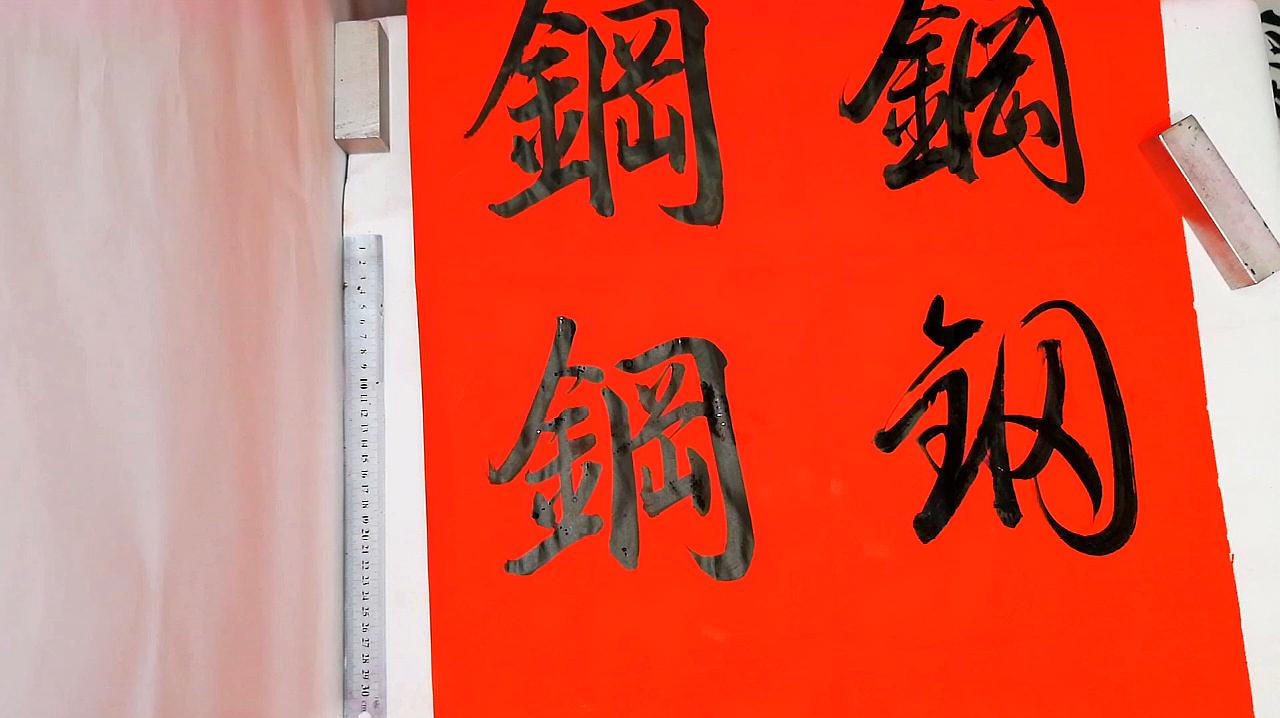 鋼 鋼
鋼 钢
1 2 3 4 5 6 7 8 9 10 11 12 13 14 15 16 17 18 19 20 21 22 23 24 25 26 27 28 29 30 cm